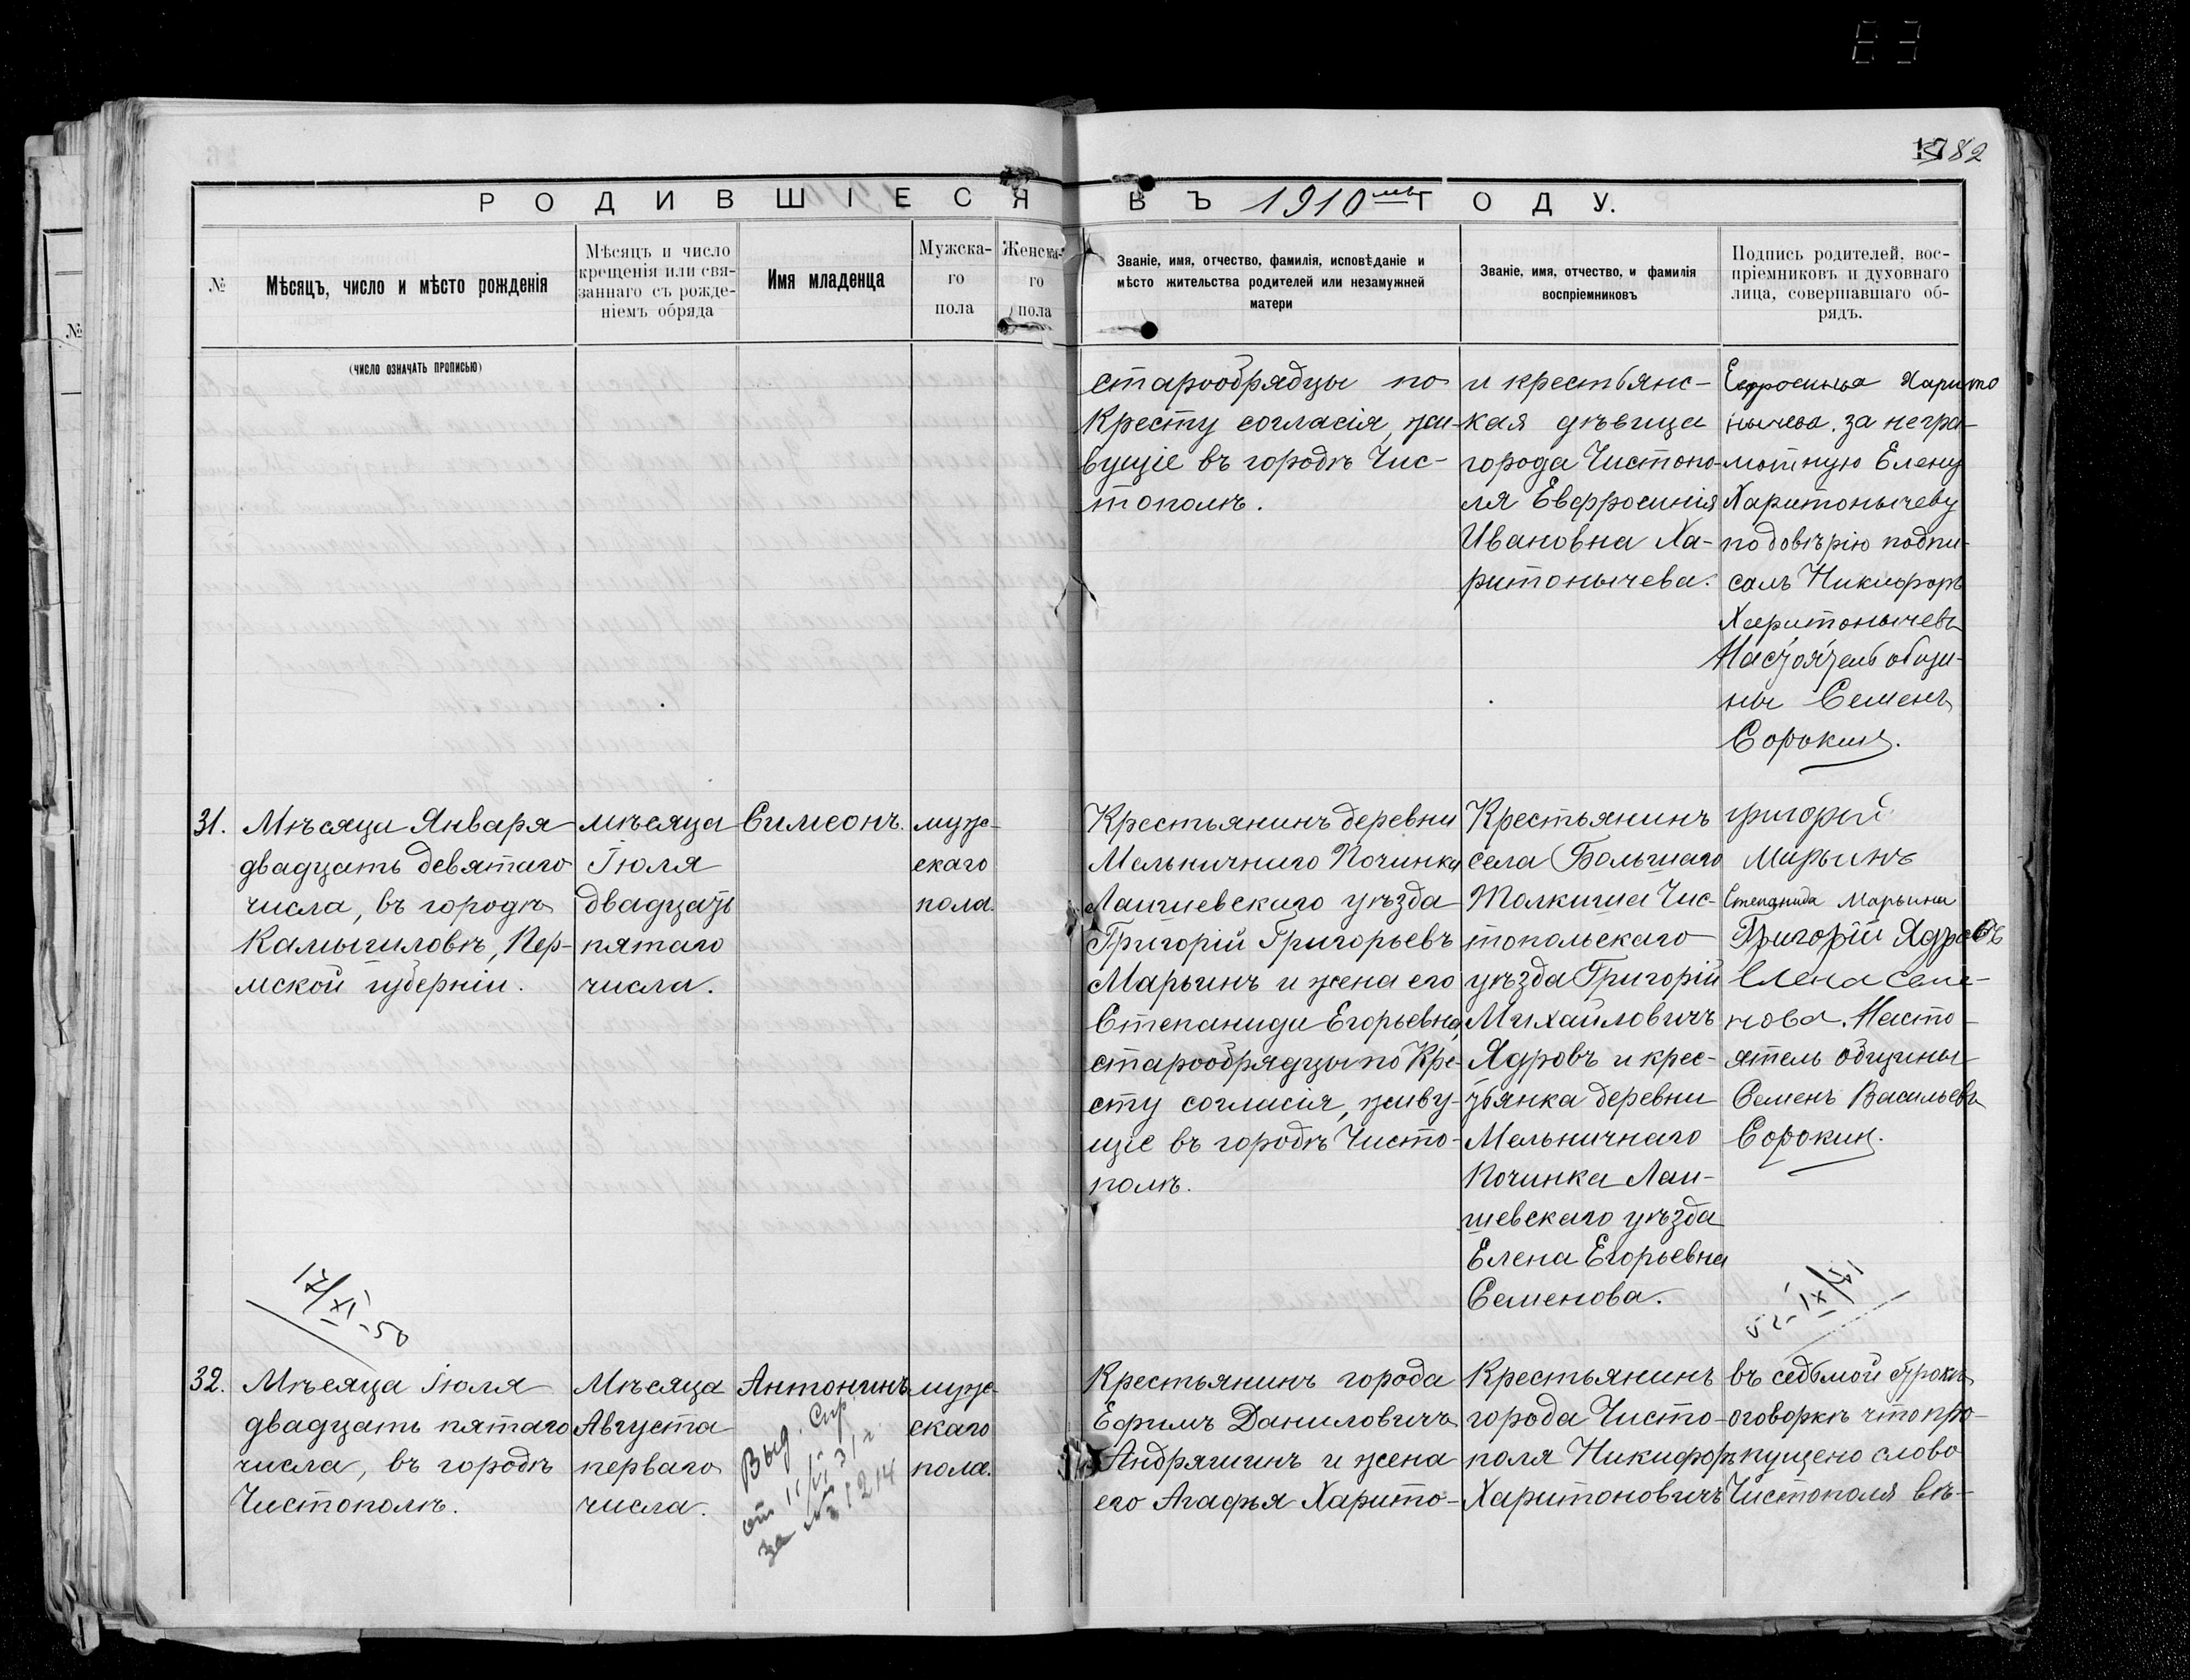 82
РОДИВШІЕСЯ ВЪ 1910мъ ГОДУ.
№
Мѣсяцъ, число и мѣсто рожденія
Мѣсяцъ и число
крещенія или свя-
заннаго съ рожде-
ніемъ обряда
Имя младенца
Мужска-
го
пола
Женска-
го
пола
Званіе, имя, отчество, фамилія, исповѣданіе и
мѣсто жительства родителей или незамужней
матери
Званіе, имя, отчество, и фамилія
воспріемниковъ
Подпись родителей, вос-
пріемниковъ и духовнаго
лица, совершавшаго об-
рядъ.
(ЧИСЛО ОЗНАЧАТЬ ПРОПИСЬЮ)
№
старообрядцы по
Кресту согласія, жи-
вущіе въ городѣ Чис-
тополѣ.
и крестьянс-
кая дѣвица
города Чистопо-
ля Евфросинія
Ивановна Ха-
ритонычева.
Ефросинья Харито
нычева. за негра-
мотную Елену
Харитонычеву
по довѣрію подпи-
салъ Никифоръ
Харитонычевъ
Настоятель общи-
ны Семенъ
Сорокинъ.
31.
Мѣсяца Января
двадцать девятаго
числа, въ городѣ
Камышловѣ, Пер-
мской губерніи.
мѣсяца
Іюля
двадцать
пятаго
числа.
Симеонъ.
муж-
скаго
пола.
Крестьянинъ деревни
Мельничнаго Починка
Лаишевскаго уѣзда
Григорій Григорьевъ
Марьинъ и жена его
Степанида Егорьевна,
старообрядцы по Кре-
сту согласія, живу-
щіе въ городѣ Чисто-
полѣ.
Крестьянинъ
села Большаго
Толкиша Чис-
топольскаго
уѣзда Григорій
Михайловичъ
Ядровъ и крес-
тьянка деревни
Мельничнаго
Починка Лаи-
шевскаго уѣзда
Елена Егорьевна
Семенова.
григорей
Марьинъ
Степанида Марьина
Григорій Ядровъ
Елена Семе-
нова. Насто-
ятель общины
Семенъ Васильевъ
Сорокин.
17/XI-50
32.
Мѣсяца Іюля
двадцать пятаго
числа, въ городѣ
Чистополѣ.
Мѣсяца
Августа
перваго
числа.
Антонинъ
Выд. Спр.
от 11/VI 31 г
за № 1214
муж-
скаго
пола.
Крестьянинъ города
Ефимъ Даниловичъ
Андряшинъ и жена
его Агафья Харито-
Крестьянинъ
города Чисто-
поля Никифоръ
Харитоновичъ
въ седьмой строкѣ
оговоркѣ что про-
пущено слово
Чистополя вѣ-